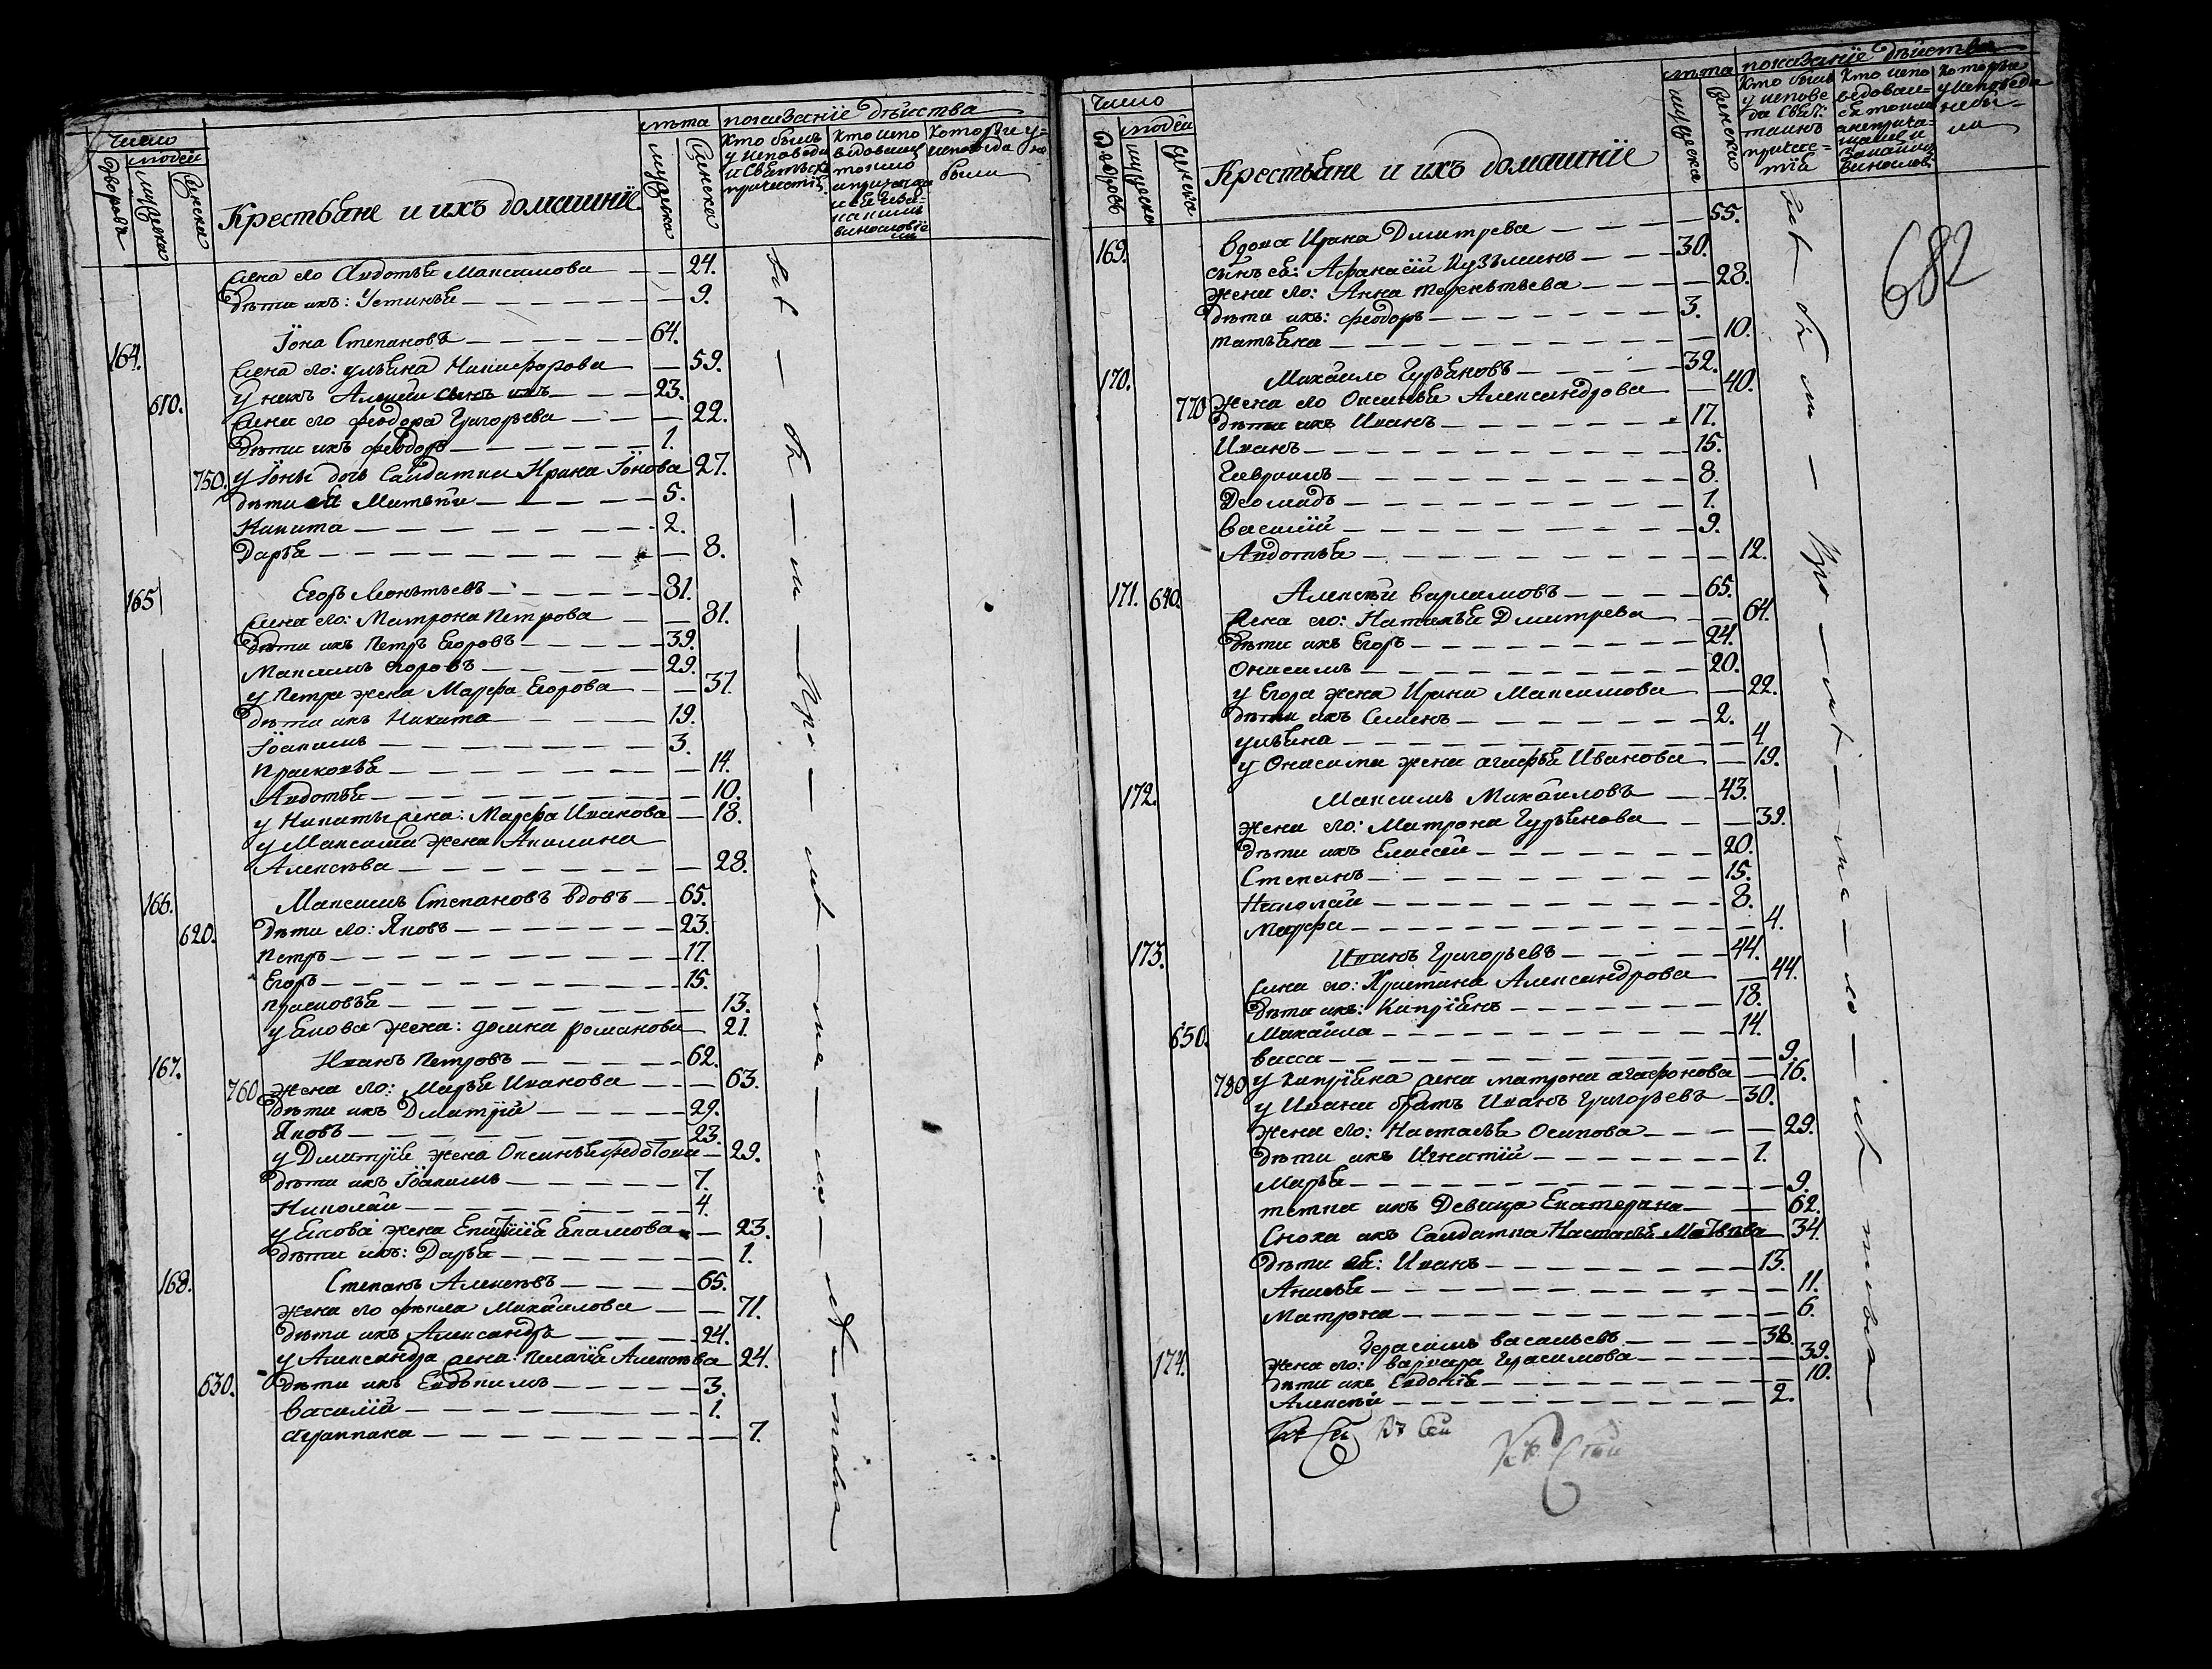 число
людей
дворовъ
мужеска
женска
Крестьяне и ихъ домашніе
лѣта
мужеска
женска
показаніе дѣйства
кто былъ у исповѣди и святыхъ причастія
кто исповѣдовался токмо а не причастился и за какимъ винословіемъ
которые у исповѣди не были
жена его Авдотья Максимова — — 24.
дѣти ихъ: Устинья — — 9.
164. Іона Степановъ — 64.
жена его: ульяна Никифорова — 59.
610. у нихъ Алексѣй сынъ ихъ — 23.
жена его феодора Григорьева — — 22.
дѣти ихъ феодоръ — 1.
750. у Іоны дочь Салдатка Ирина Іонова 27.
дѣти ея Матвѣй — 5.
Никита — 2.
Дарья — — 8.
165 Егоръ Леонтьевъ — 81.
жена его: Матрона Петрова — — 81.
дѣти ихъ Петръ Егоровъ — 39.
Максимъ Егоровъ — 29.
у Петра жена Марфа Егорова — — 37.
дѣти ихъ Никита — 19.
Іоакимъ — 3.
Прасковья — 14.
Авдотья — 10.
у Никиты жена: Марфа Иванова — 18.
у Максима жена Акилина
Алексѣева — 28.
166. Максимъ Степановъ вдовъ — 65.
620. дѣти его: Яковъ — 23.
Петръ — 17.
Егоръ — 15.
Прасковья — 13.
у Якова жена: домна романова 21.
167. Иванъ Петровъ — 62.
760 жена его: Марья Иванова — — 63.
дѣти ихъ Дмитрій — 29.
Яковъ — 23.
у Дмитрія жена Оксинья федотова — 29.
дѣти ихъ Іоакимъ — 7.
Николай — 4.
у Якова жена — 23.
дѣти ихъ: Дарья — 1.
168. Степанъ Алексѣевъ — 65.
жена его фекла Михайлова — — 71.
дѣти ихъ Александръ — 24.
у Александра жена: Пелагія Алексѣева 24.
630. дѣти ихъ Евдокимъ — 3.
Василій — 1.
Агрипина — 7.
всѣ — объ — яв — про — лѣ — та — ло — сѣ
число
людей
дворовъ
мужеска
женска
Крестьяне и ихъ домашніе
лѣта
мужеска
женска
показаніе дѣйства
кто былъ у исповѣди святъ таинъ причастія
кто исповѣдовался токмо а непричащался и за какимъ винослов
которые у исповѣди небыли
682
169. Вдова Ирина Дмитрева — — 55.
сынъ ея: Афанасій Кузьминъ — 30.
жена его: Анна терентьева — — 28.
дѣти ихъ: феодоръ — 3.
татьяна — 10.
170. Михайло Гурьяновъ — 32.
770 жена его Оксинья Александрова — 40.
дѣти ихъ Иванъ — 17.
Иванъ — 15.
Гавріилъ — 8.
Деомидъ — 1.
Василій — 9.
Авдотья — 12.
171. 640. Алексѣй варламовъ — 65.
жена его: Наталья Дмитрева — 64.
дѣти ихъ Егоръ — 24.
Онисимъ — 20.
у Егора жена Ирина Максимова — 22.
дѣти ихъ Семенъ — 2.
ульяна — 4.
у Онисима жена агафья Иванова — 19.
172. Максимъ Михайловъ — 43.
жена его: Матрона Гурьянова — — 39.
дѣти ихъ Елисей — 20.
Степанъ — 15.
Николай — 8.
Марфа — 4.
173. Иванъ Григорьевъ — 44.
жена его: Христина Александрова — 44.
дѣти ихъ: Кипріянъ — 18.
650. Михайла — 14.
васса — 9.
780 у Кипріяна жена матрона агафонова — 16.
у Ивана братъ Иванъ Григорьевъ — 30.
жена его: Настасья Осипова — — 29.
дѣти ихъ Игнатій — 1.
Марья — 9.
тетка ихъ Девица Екатерина — 62.
Сноха ихъ Салдатка Настасья Матвѣева 34.
дѣти ея: Иванъ — 13.
Анисья — 11.
Матрона — 6.
174. Герасимъ васильевъ — 38.
жена его: варвара Герасимова — 39.
дѣти ихъ Евдокія — 10.
Алексѣй — 2.